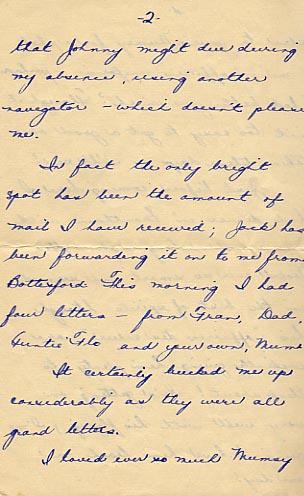 -2-
that Johnny might due during
my absence, using another
navigator - which doesn't please
me.
In fact the only bright
spot has been the amount of
mail I have received; Jack has
been forwarding it on to me from
Bottesford This morning I had
four letters - from Fran, Dad,
Auntie Flo and your own, Mum
It certainly bucked me up
considerably as they were all
grand letters.
I loved ever so much Mumsy